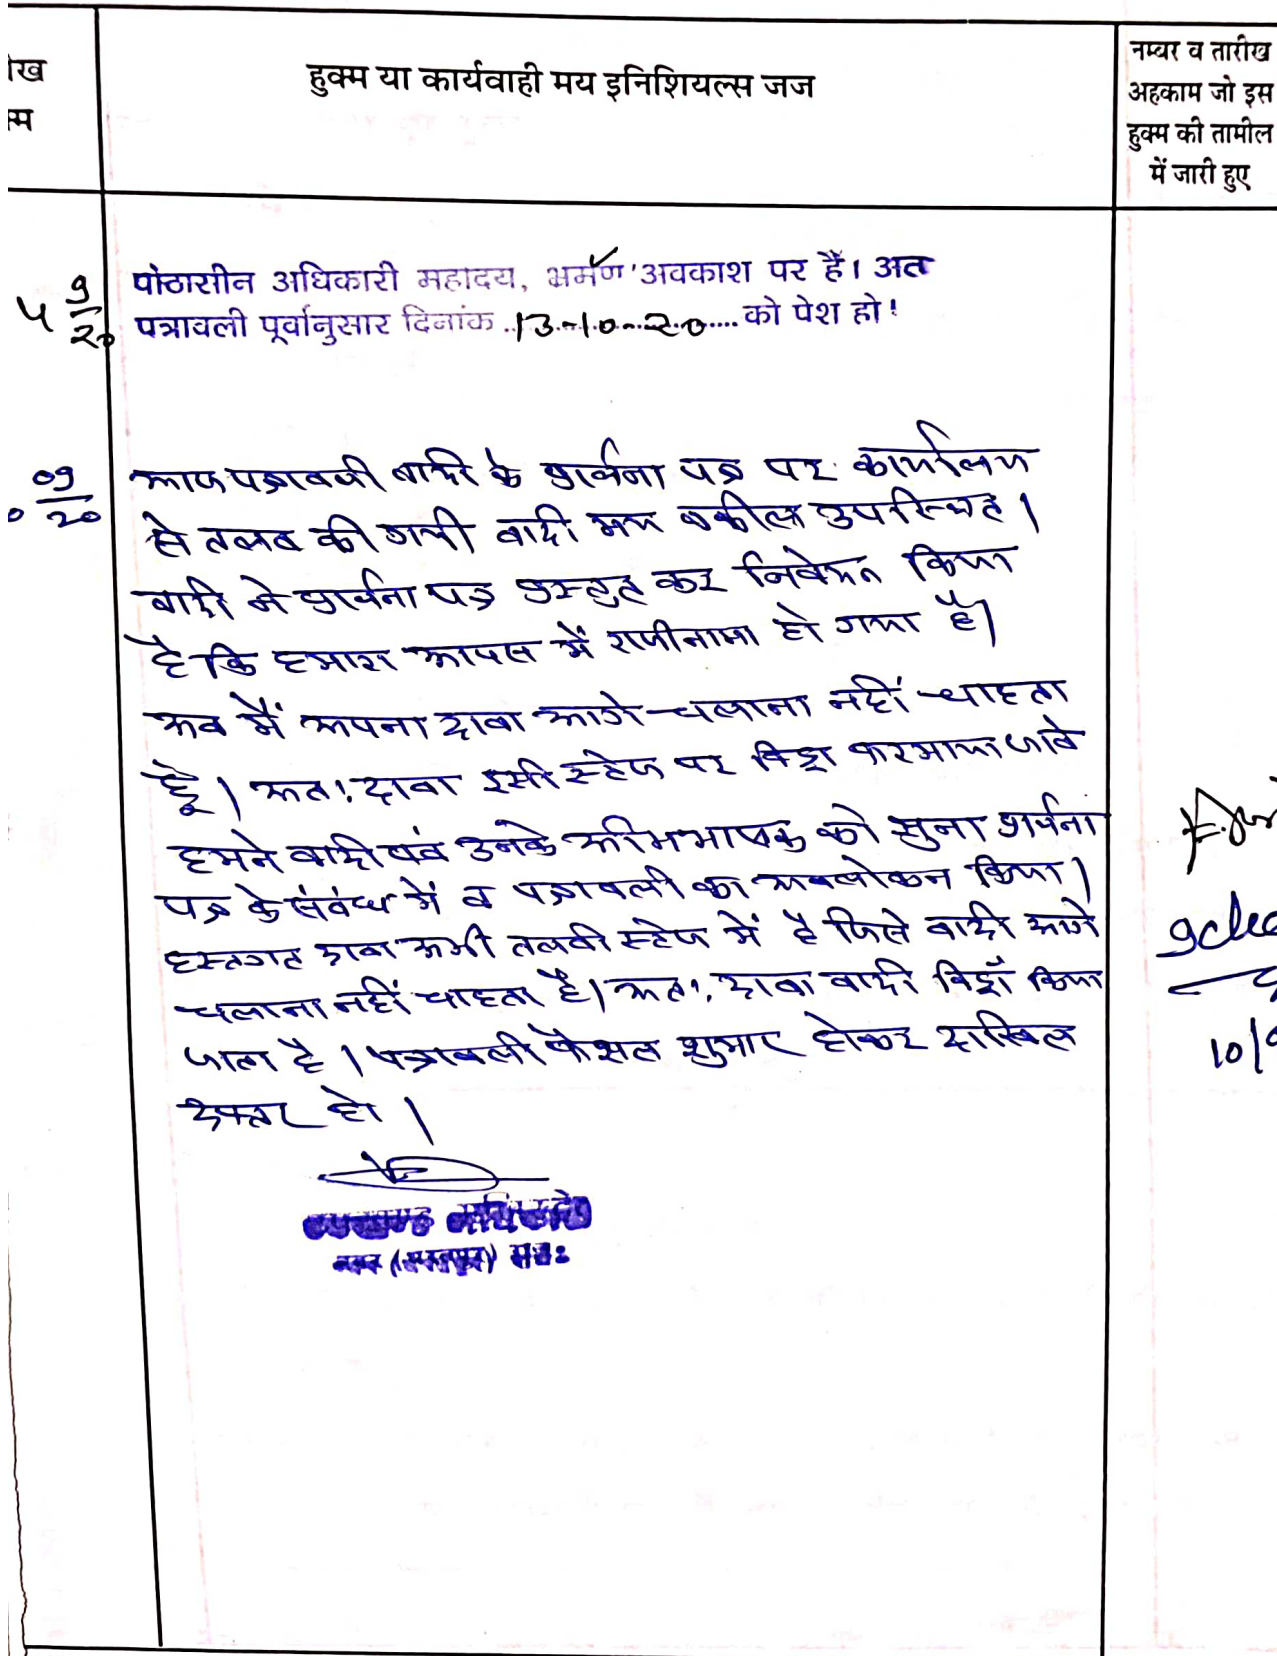 ीख
म
हुक्म या कार्यवाही मय इनिशियल्स जज
नम्बर व तारीख
अहकाम जो इस
हुक्म की तामील
में जारी हुए
पीठासीन अधिकारी महोदय, भ्रमण/अवकाश पर हैं। अत
पत्रावली पूर्वानुसार दिनांक 13-10-20 को पेश हो!
9/20
09/20
आज पत्रावली वादी के प्रार्थना पत्र पर कार्यालय
से तलब की गयी वादी मय वकील उपस्थित।
वादी ने प्रार्थना पत्र प्रस्तुत कर निवेदन किया
है कि हमारा आपस में राजीनामा हो गया है।
अब मैं अपना दावा आगे चलाना नहीं चाहता
हूँ। अतः दावा इसी स्टेज पर विड्रा फरमाया जावे
हमने वादी एवं उनके अभिभाषक को सुना प्रार्थना
पत्र के संबंध में व पत्रावली का अवलोकन किया।
हस्तगत दावा अभी तलवी स्टेज में है जिसे वादी आगे
चलाना नहीं चाहता है। अतः दावा वादी विड्रॉ किया
जाता है। पत्रावली फैसल शुमार होकर दाखिल
दफ्तर हो।
10/9